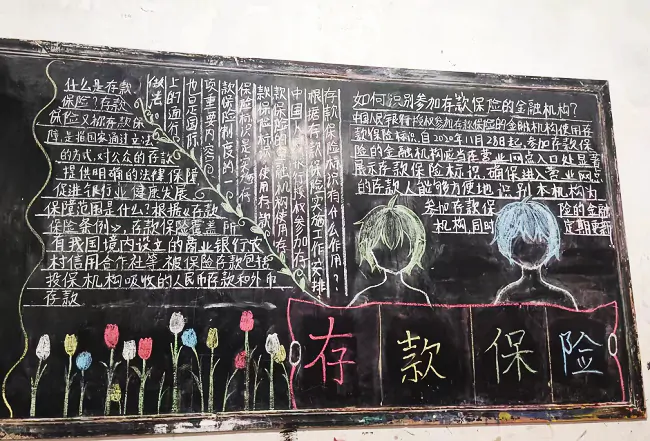 什么是存款
保险?存款
保险又称存款保
障,是指国家通过立法
的方式,对公众的存款
提供明确的法律保障
促进银行业健康发展
保障范围是什么?根据《存款
保险条例》,存款保险覆盖所
有我国境内设立的商业银行农
村信用合作社等,被保险存款包括
投保机构吸收的人民币存款和外币
存款
存款保险标识有什么作用?
根据存款保险实施工作安排
中国银行授权参加存
款保险的金融机构使用存
款保险标
保险标识是实施存
款保险制度的一
项重要内容
也是国际
上的通行
做法。
如何识别参加存款保险的金融机构?
中国人民银行授权参加存款保险的金融机构使用存
款保险标识,自2020年11月28日起,参加存款保
险的金融机构应当在营业网点入口处显著
展示存款保险标识,确保进入营业网点
的存款人能够方便地识别本机构为
参加存款保险的金融
机构,同时定期更新
存款保险